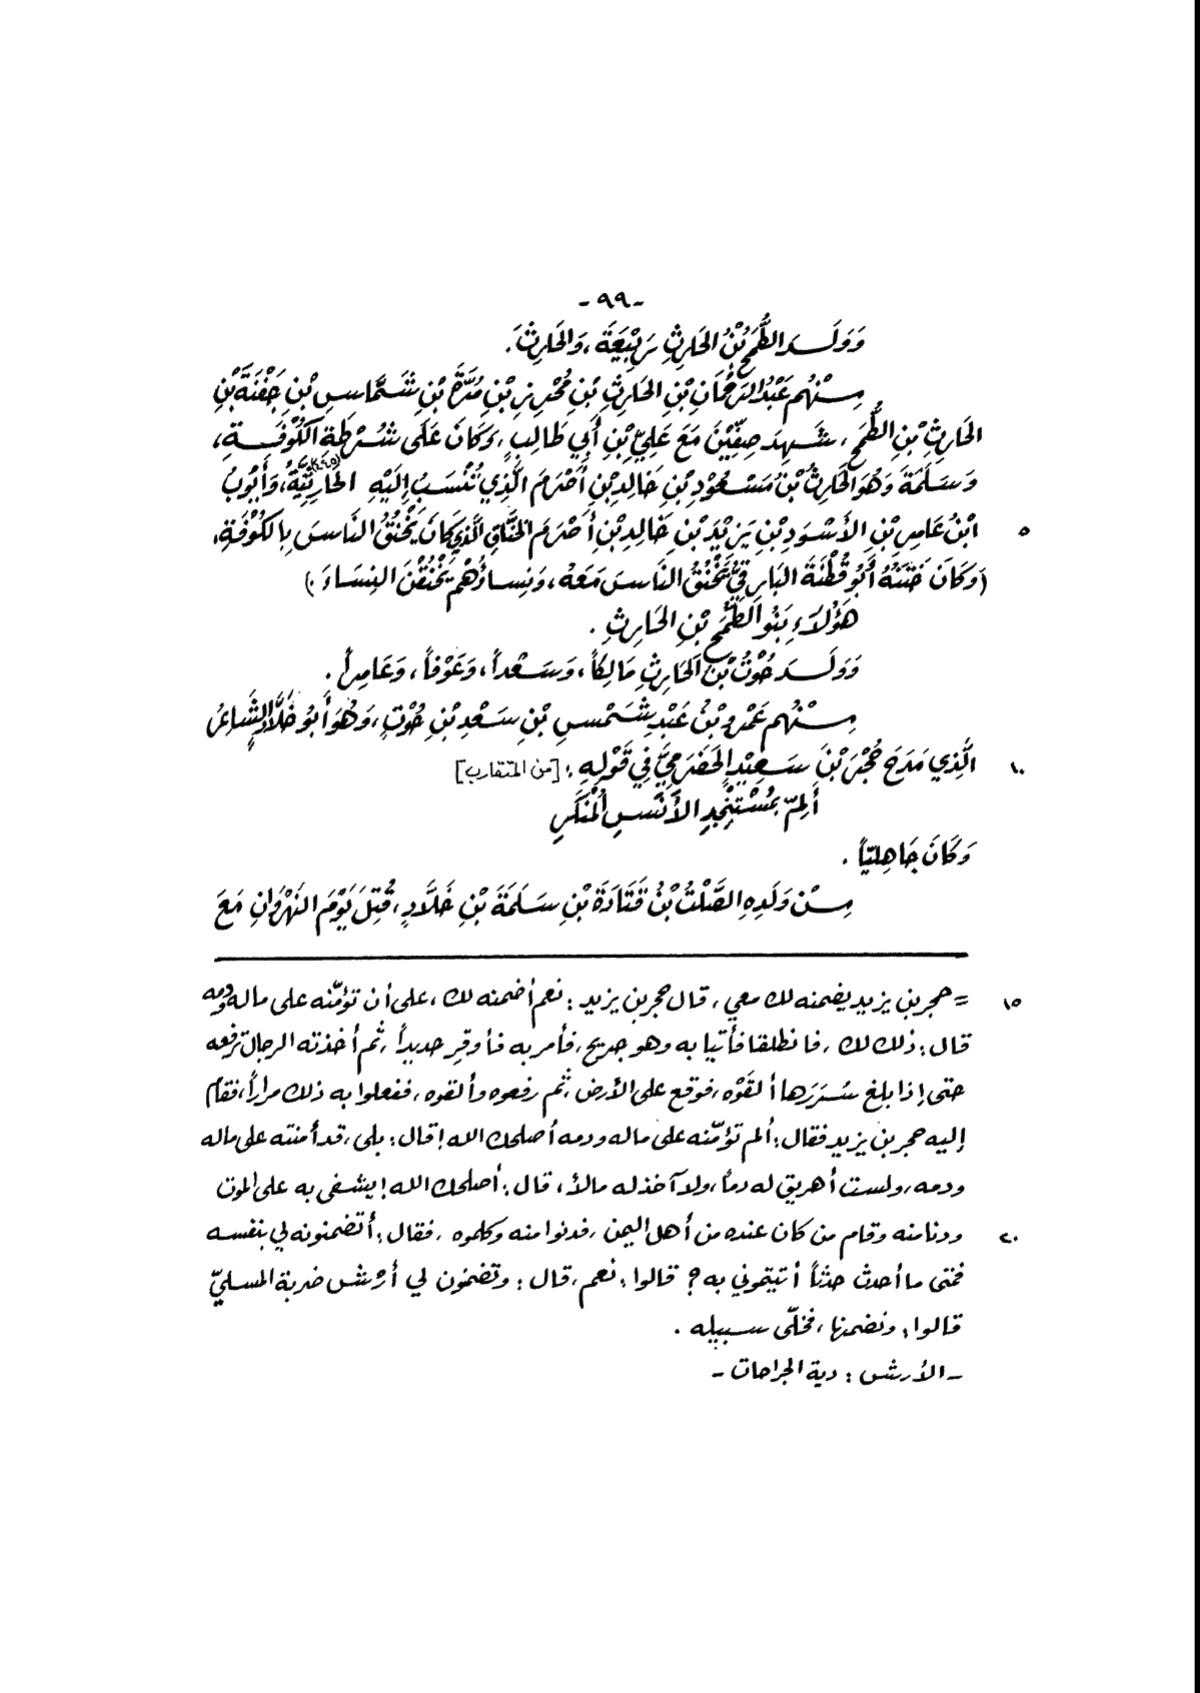 - ٩٩ -
وَوَلَـدَ الطُّمَحُ بْنُ الحَارِثِ رَبِيْعَةَ، وَالحَارِثَ.
مِـنْهُم عَبْدُ الرَّحْمَانِ بْنِ الحَارِثِ بْنِ مُحْرِزِ بْنِ مُرَّةَ بْنِ شَمَّاسِ بْنِ جَفْنَةَ بْنِ
الحَارِثِ بْنِ الطُّمَحِ، شَهِدَ صِفِّيْنَ مَعَ عَلِيِّ بْنِ أَبِي طَالِبٍ، وَكَانَ عَلَى شُرْطَةِ الكُوْفَـةِ،
وَسَلَمَةَ وَهُوَ الحَارِثُ بْنُ مَسْعُوْدِ بْنِ خَالِدِ بْنِ أَصْرَمَ الَّذِي تُنْسَبُ إِلَيْهِ الحَارِثِيَّةُ، وَأَيُّوبُ
٥ ابْنُ عَامِرِ بْنِ الأَسْوَدِ بْنِ يَزِيْدَ بْنِ خَالِدِ بْنِ أَصْرَمَ الخَنَّاقِ الَّذِي كَانَ يَخْنُقُ النَّاسَ بِالكُوْفَةِ،
(وَكَانَ خَتَنُهُ أَبُو قُطْنَةَ البَارِقِيُّ يَخْنُقُ النَّاسَ مَعَهُ، وَنِسَاؤُهُمْ يَخْنُقْنَ النِسَاءَ.)
هَؤُلَاءِ بَنُو الطُّمَحِ بْنِ الحَارِثِ.
وَوَلَـدَ حُوْتُ بْنُ الحَارِثِ مَالِكاً، وَسَعْداً، وَعَوْفاً، وَعَامِراً.
مِـنْهُم عَمْرُو بْنُ عَبْدِ شَمْسِ بْنِ سَعْدِ بْنِ حُوْتٍ، وَهُوَ أَبُو خَلَّادٍ الشَّاعِرُ
١٠ الَّذِي مَدَحَ حُجْرَ بْنَ سَعِيْدٍ الحَضْرَمِيَّ فِي قَوْلِهِ: [من المتقارب]
أَلِمّ بِمُسْتَنْجِدِ الأَنَسِ المُنْكَرِ
وَكَانَ جَاهِلِيّاً.
مِـنْ وَلَدِهِ الصَّلْتُ بْنُ قَتَادَةَ بْنِ سَلَمَةَ بْنِ خَلَّادٍ، قُتِلَ يَوْمَ النَهْرَوَانِ مَعَ
١٥ = حجر بن يزيد يضمنه لك معي، قال حجر بن يزيد: نعم أضمنه لك، على أن تؤمّنه على ماله ودمه
قال: ذلك لك، فانطلقا فأتيا به وهو جريح، فأمر به فأوقر حديداً، ثم أخذته الرجال ترفعه
حتى إذا بلغ سُرَرَها ألقَوْه، فوقع على الأرض، ثم رفعوه وألقوه، ففعلوا به ذلك مراراً، فقام
إليه حجر بن يزيد فقال: ألم تؤمّنه على ماله ودمه أصلحك الله! قال: بلى، قد أمنته على ماله
ودمه، ولست أهريق له دماً، ولا آخذ له مالاً، قال: أصلحك الله! يشفى به على الموت
٢٠ ودنا منه وقام من كان عنده من أهل اليمن، فدنوا منه وكلموه، فقال: أتضمنونه لي بنفسه
فمتى ما أحدث حدثاً أتيتموني به؟ قالوا: نعم، قال: وتضمنون لي أرْش ضربة المسليّ
قالوا: ونضمنها، فخلّى سبيله.
- الأرش: دية الجراحات -